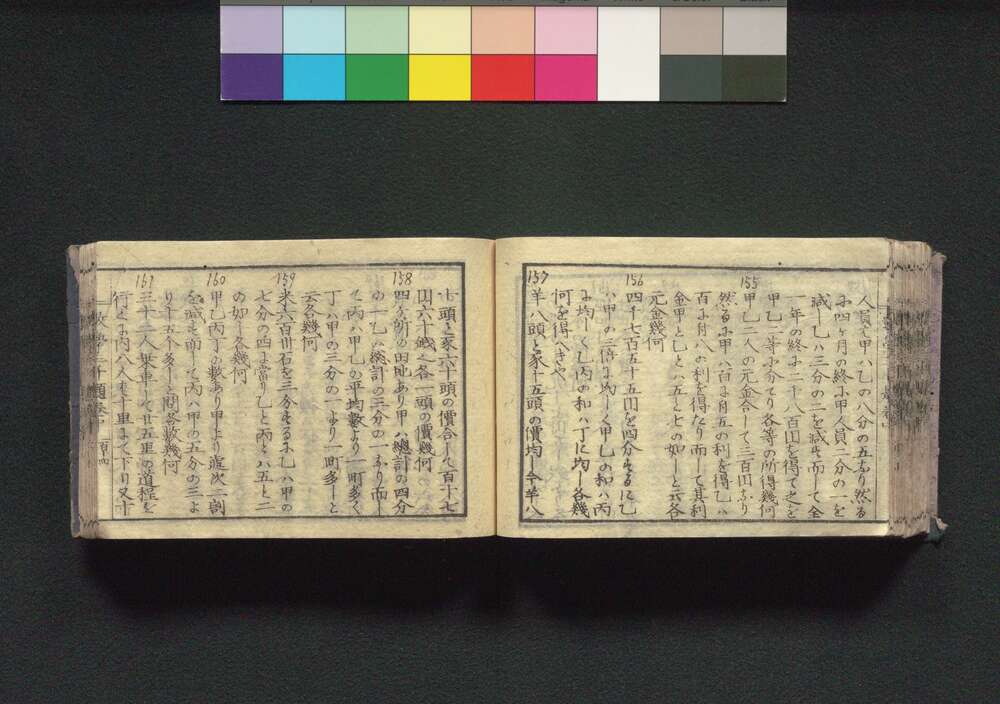 人員ハ甲ハ乙の八分の五なり然る
に四ケ月の終に甲人員二分の一を
減し乙ハ三分の二を減せ而して全
一年の終に二千八百円を得て之を
甲乙二等に分てり各等の所得幾何
155
甲乙二人の元金合して三百円なり
然るに甲ハ百に付五の利を得乙ハ
百に付八の利を得たり而して其利
金甲と乙とハ五と七の如しと云各
元金幾何
156
四千七百五十五円を四分するに乙
ハ甲の三倍に均しく甲乙の和ハ丙
に均しく乙丙の和ハ丁に均し各幾
何を得へきや
157
羊八頭と豕十五頭の價均し今羊八
十頭と豕六十頭の價合して百十七
円六十銭之各一頭の價幾何
158
四ケ所の田地あり甲ハ總計の四分
の一乙ハ總計の三分の一なり而し
て丙ハ甲乙の平均數より一町多く
丁ハ甲の三分の一より一町多しと
云各幾何
159
米六百卅石を三分するに乙ハ甲の
七分の四に當り乙と丙とハ五と二
の如し各幾何
160
甲乙丙丁の數あり甲より遞次二割
を減せ而して丙ハ甲の五分の三よ
り十五个多しと問各數幾何
161
三十二人乗車して廿五里の道程を
行くに内八人も十里まて下り又十